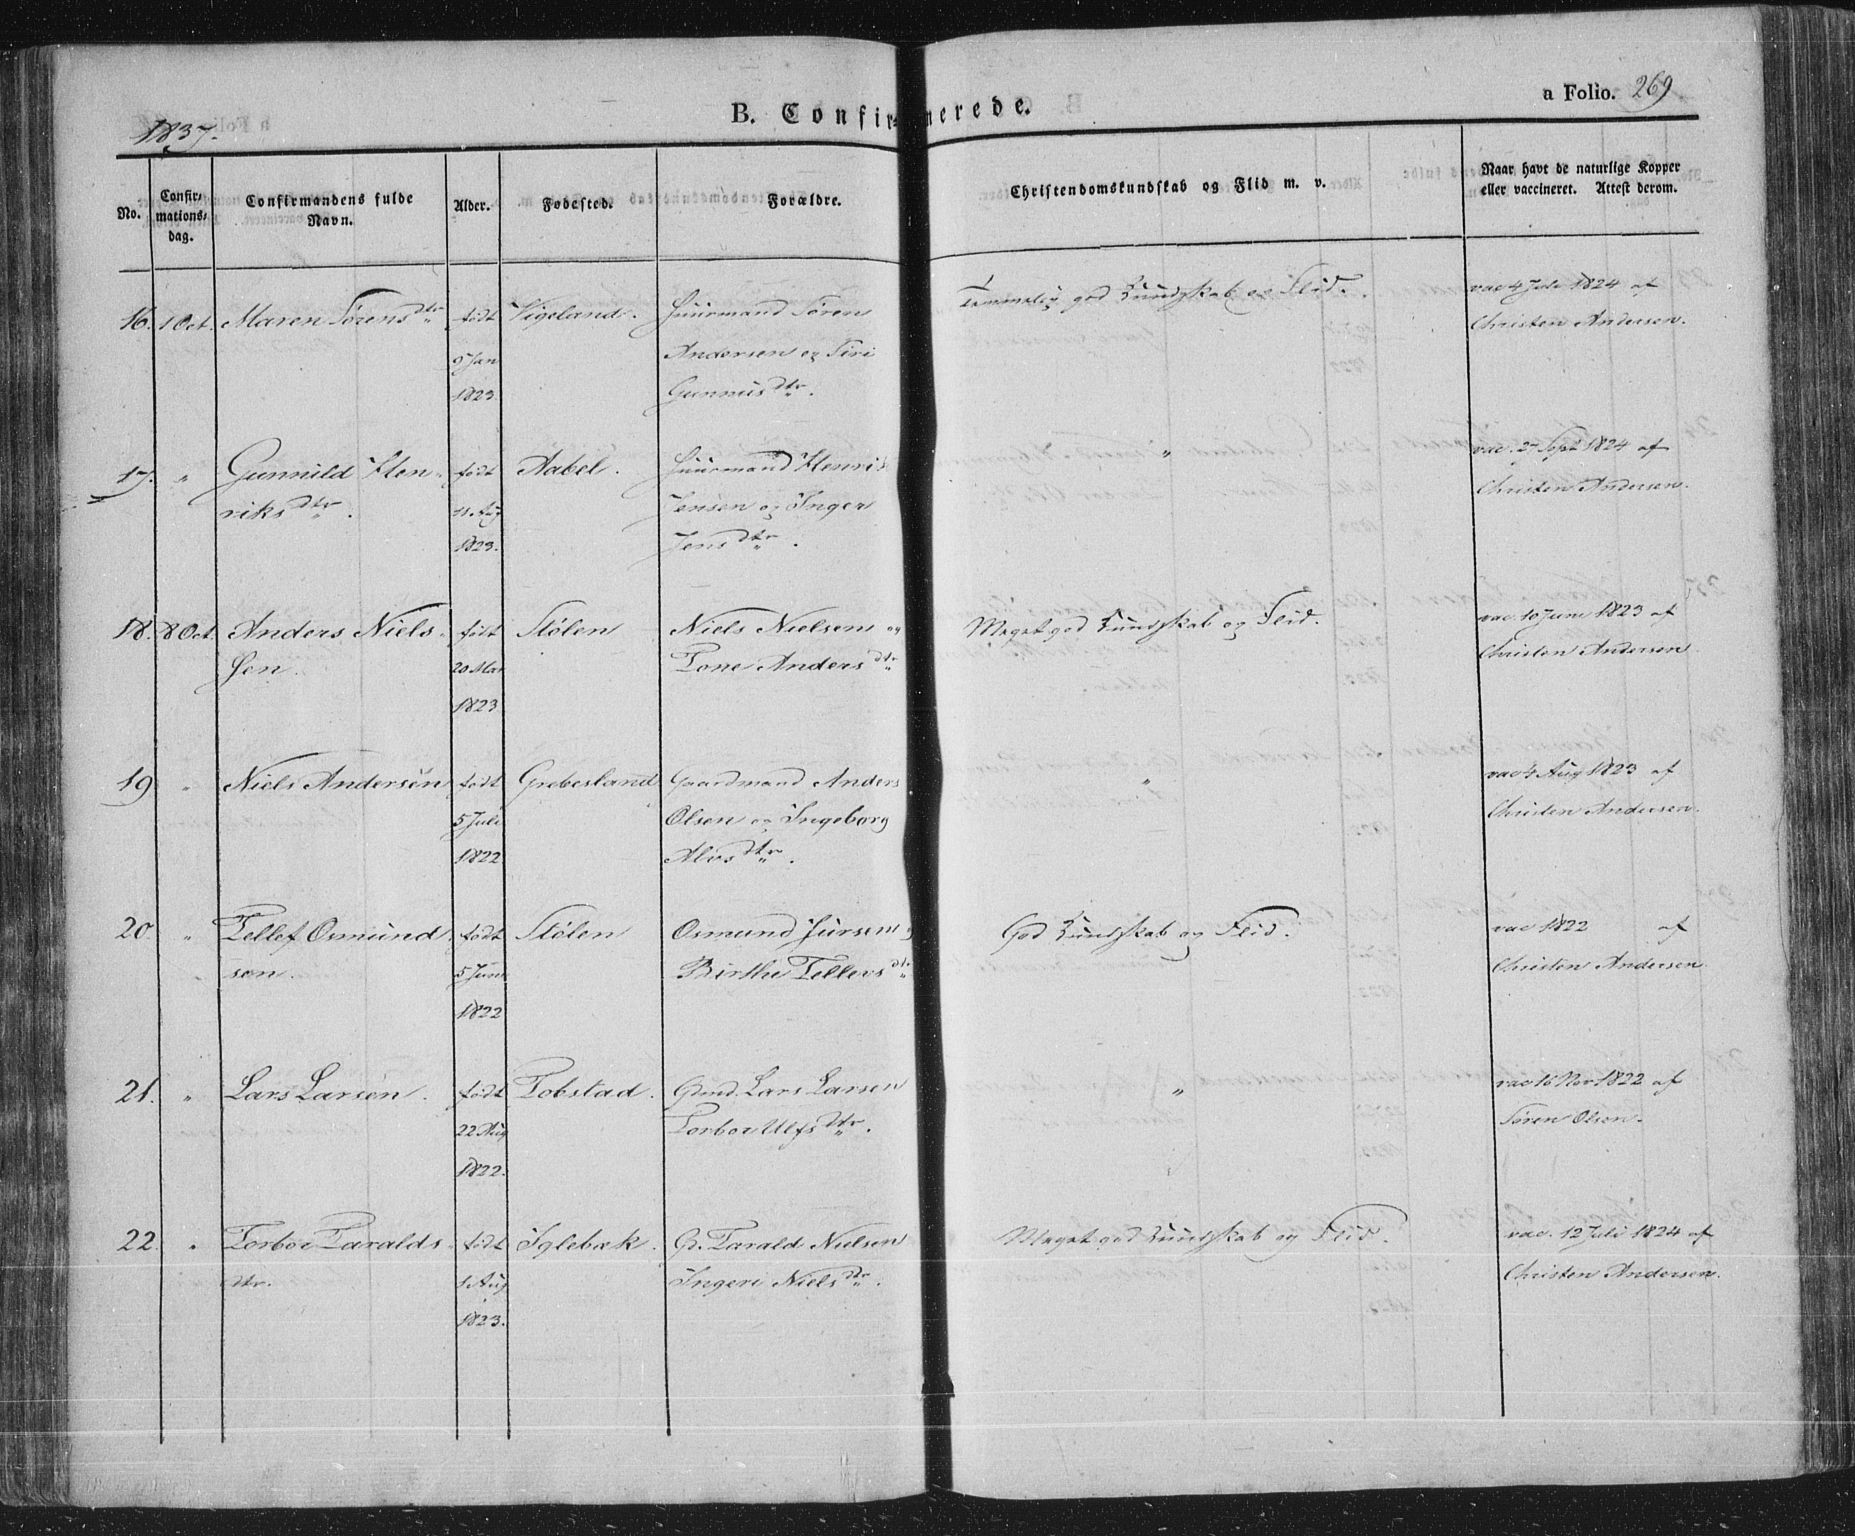 1837.
B. Confirmerede.
a Folio. 269
No.
Confir-
mations-
dag.
Confirmandens fulde
Navn.
Alder.
Fødested.
Forældre.
Christendomskundskab og Flid m. v.
Naar havt de naturlige Kopper
eller vaccineret. Attest derom.
16. 1 Oct. Maren Sørens dtr født Vigeland. Huusmand Søren Temmelig god Kundskab og Flid. vac 4 Juli 1824 af
9 Jan Andersen og Siri Christen Andersen.
1823. Gunnus dtr.
17. " Gunnild Hen- født Aabel. Huusmand Henrik " vac. 27 Sept 1824 af
riks dtr. 11 Aug Jensen og Inger Christen Andersen.
1823. Jens dtr.
18. 8 Oct. Anders Niels- født Stølen Niels Nielsen og Meget god Kundskab og Flid. vac. 10 Juni 1823 af
sen. 20 Mar Tone Anders dtr Christen Andersen
1823
19 " Niels Andersen født Grebesland Gaardmand Anders " vac 4 Aug 1823 af
5 Juli Olsen og Ingeborg Christen Andersen.
1822 Alvs dtr.
20. " Tellef Osmund født Stølen Osmund Jursen og God Kundskab og Flid. vac 1822 af
sen. 5 Juni Birthe Tellevs dtr Christen Andersen
1822
21. " Lars Larsen. født Tobstad. Gmd. Lars Larsen " vac 16 Nov 1822 af
22 Aug Torbor Ulfs dtr. Søren Olsen.
1822.
22. " Torbor Taralds født Iglebæk. G. Tarald Nielsen Meget god Kundskab og Flid. vac. 12 Juli 1824 af
dtr. 1 Aug Ingeri Niels dtr. Christen Andersen.
1823.